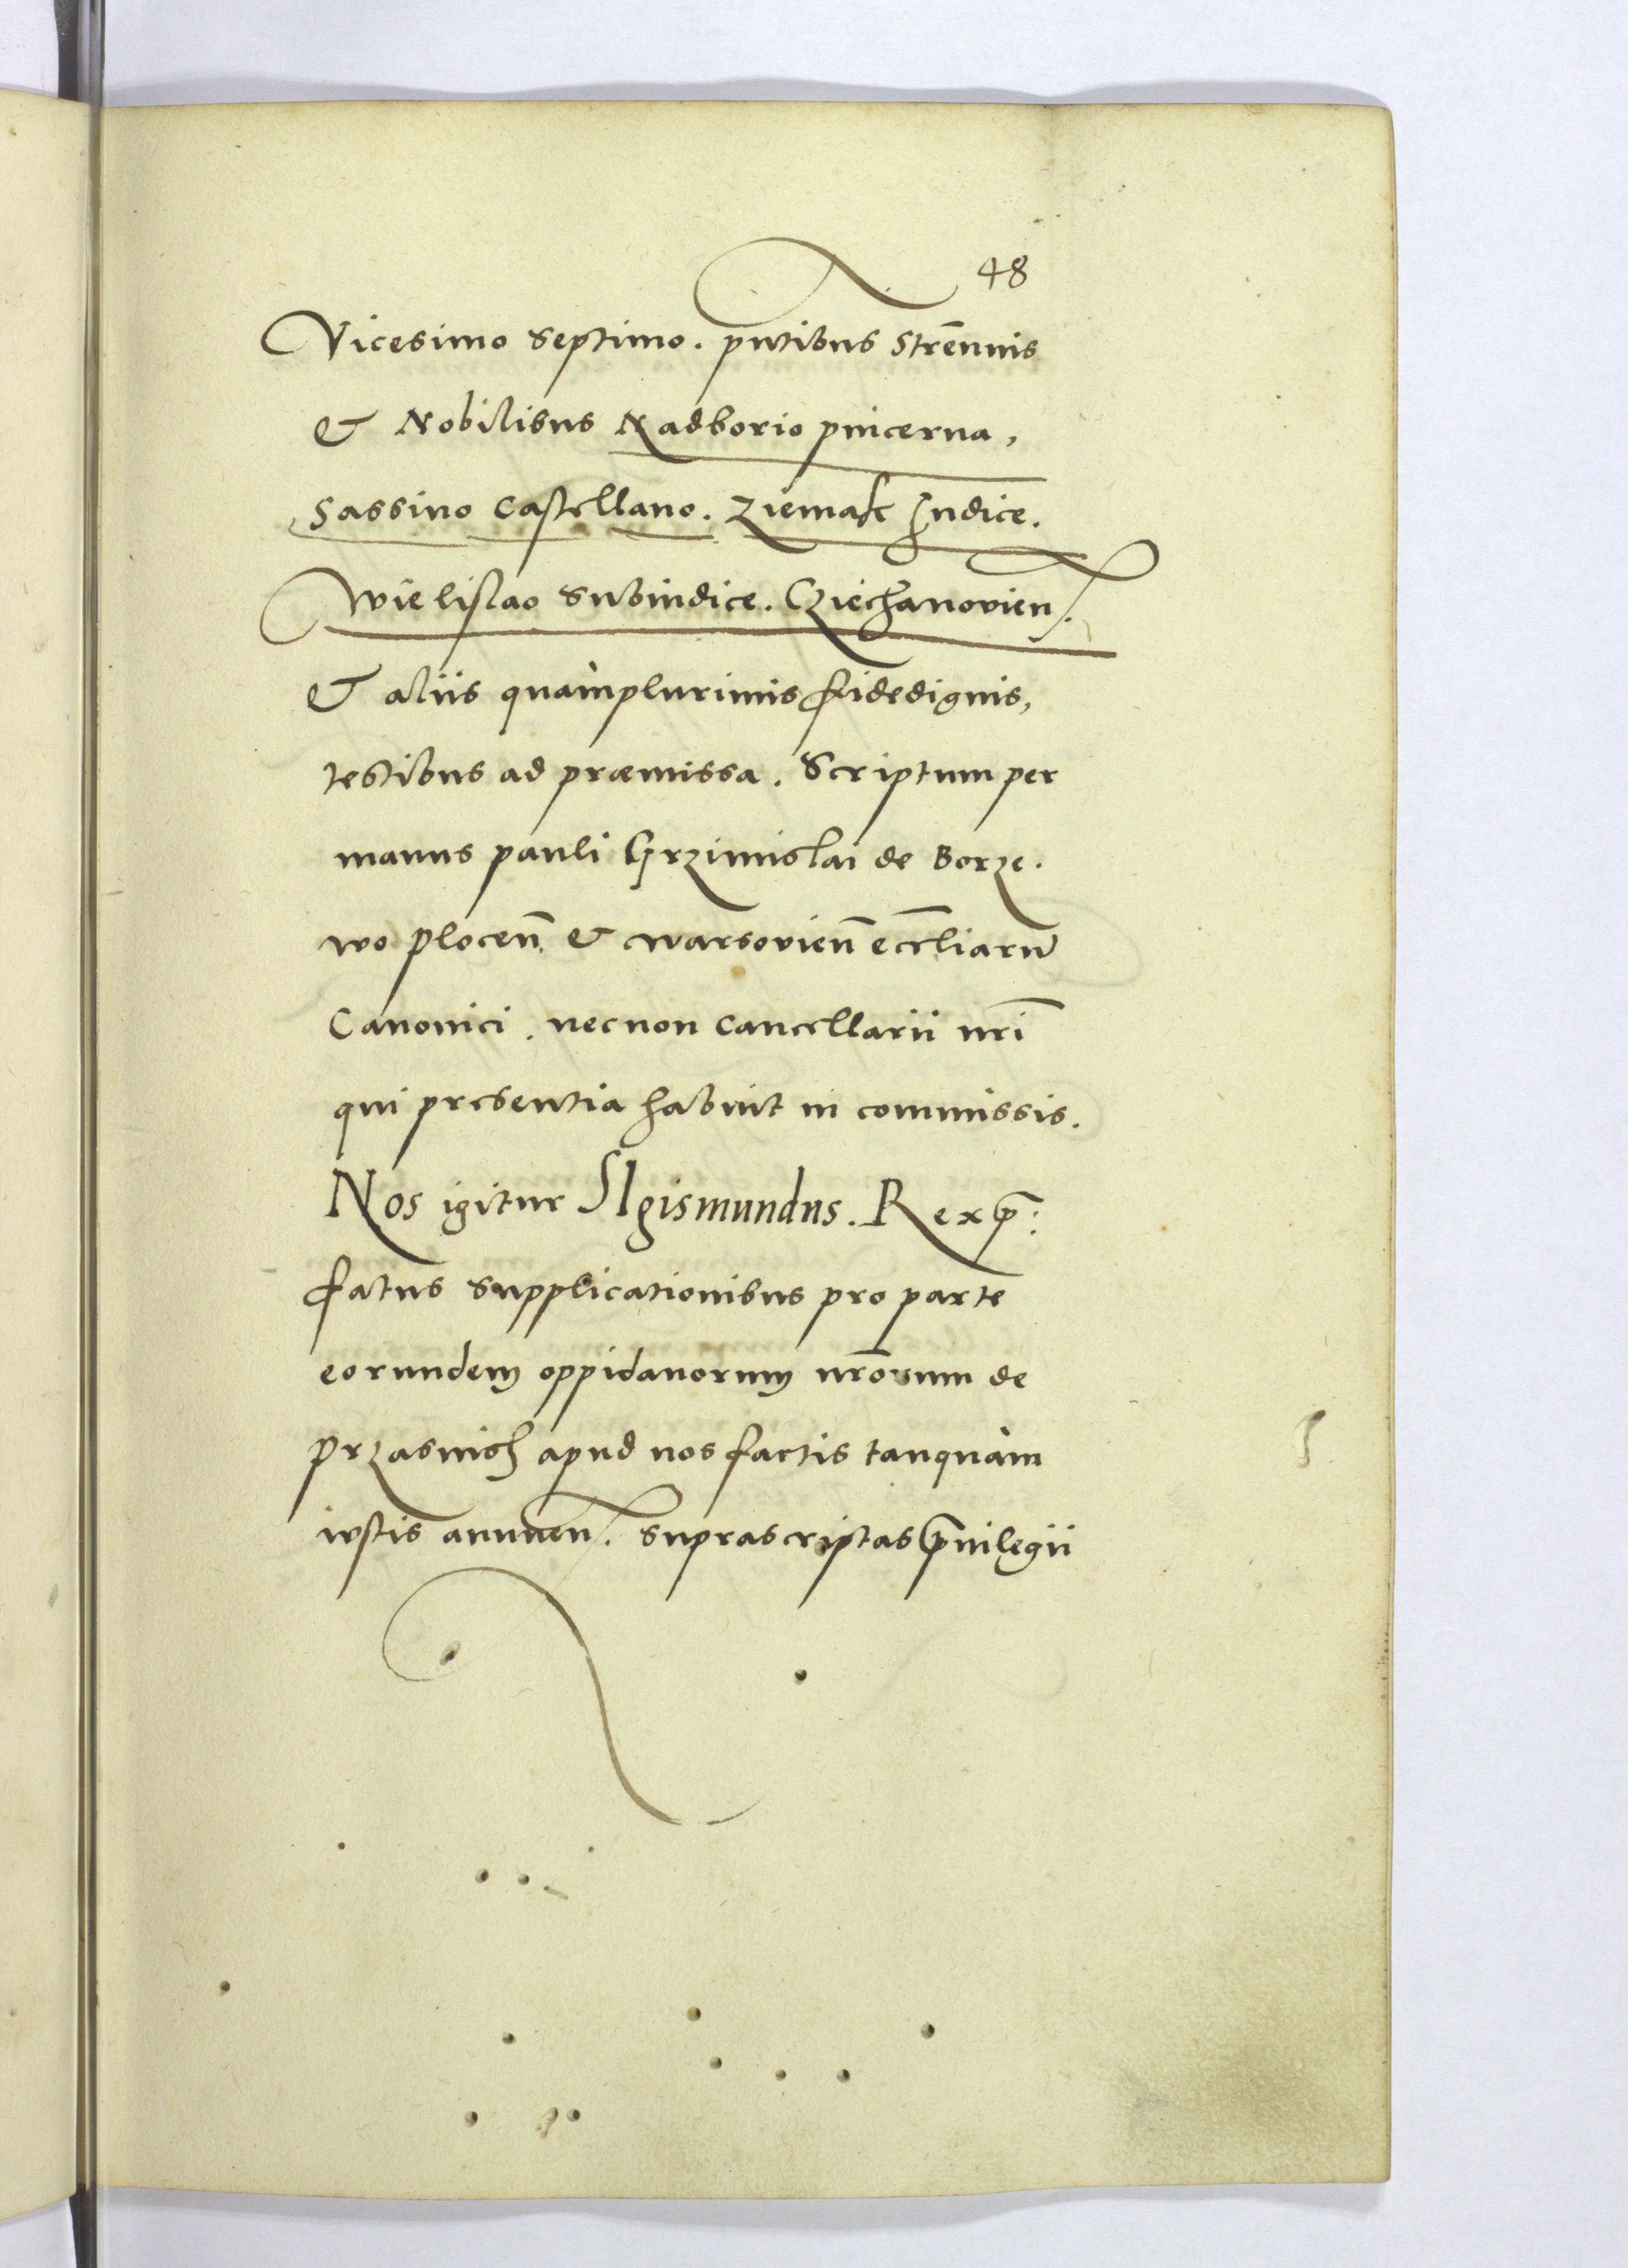 48
Vicesimo septimo. pñtibus Strẽnuis
& Nobilibus Nadborio pincerna,
Sassino Castellano. Ziemak Iudice.
Wielislao Subiudice. Cziechanovien.
& aliis quàmplurimis fidedignis,
testibus ad præmissa. Scriptum per
manus pauli Grzimislai de Borze.
wo plocen̄ & warsovien̄ eccl̄iarū
Canonici. necnon Cancellarii nr̄i
qui presentia habuit in commissis.
Nos igitur SIgismundus. Rex p̄:
fatus supplicationibus pro parte
eorundem oppidanorum nr̄orum de
Przasnish apud nos factis tanquàm
iustis annuen. suprascriptas p̄uilegii